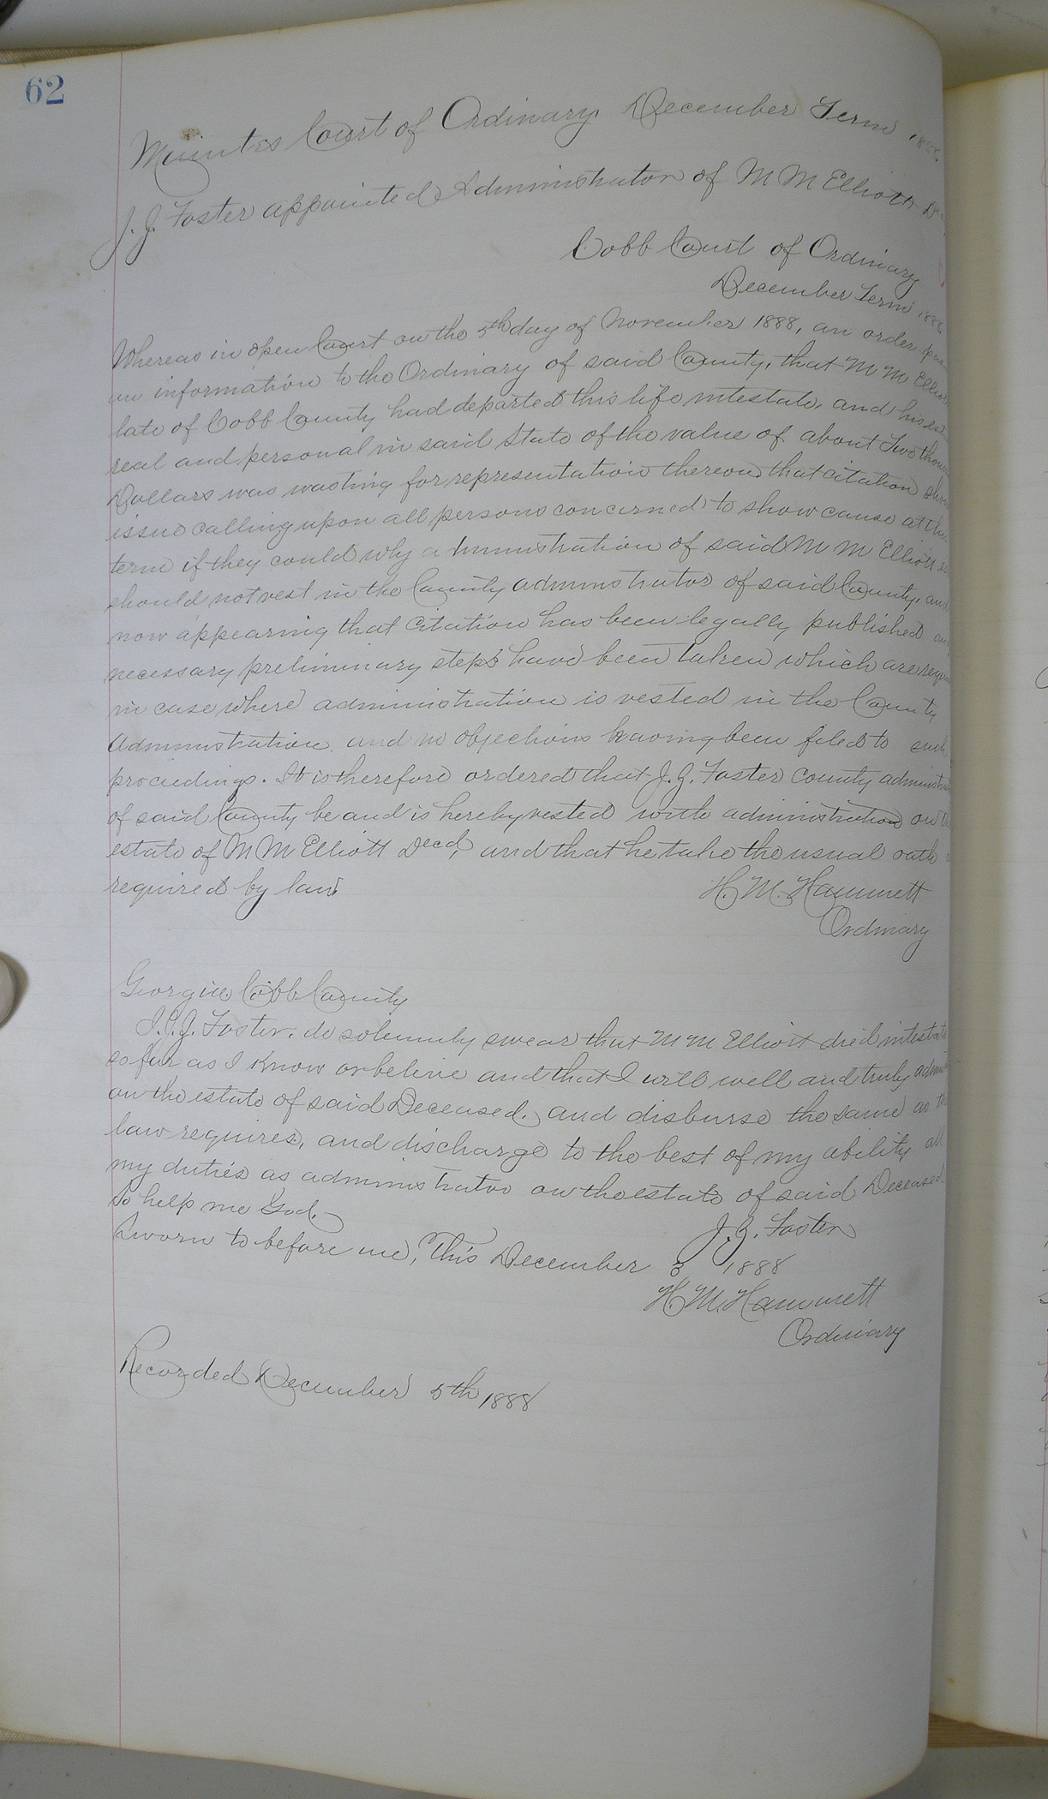 62
Minutes Court of Ordinary December Term 1888.
J. J. Foster appointed Administrator of M M Elliott
Cobb Court of Ordinary
December Term 1888
Whereas in open Court on the 5th day of November 1888, an order
on information to the Ordinary of said County, that M M Elliott
late of Cobb County had departed this life intestate, and his
real and personal in said State of the value of about Two
Dollars was wasting for representation thereon that citation
issue calling upon all persons concerned to show cause at
term if they could why administration of said M M Elliott
should not vest in the County administrator of said County, and
now appearing that citation has been legally published
necessary preliminary steps have been taken which are
in case where administration is vested in the County
Administration and no objections having been filed to such
proceedings. It is therefore ordered that J. J. Foster County
of said County be and is hereby vested with administration on
estate of M M Elliott Decd, and that he take the usual oath
required by law.
H. M. Hammett
Ordinary
Georgia, Cobb County
I, J. J. Foster, do solemnly swear that M M Elliott died intestate
so far as I know or believe and that I will well and truly
on the estate of said Deceased, and disburse the same as
law requires, and discharge to the best of my ability all
my duties as administrator on the estate of said Deceased
So help me God.
J. J. Foster
Sworn to before me, This December 3 1888
H. M. Hammett
Ordinary
Recorded December 5th 1888